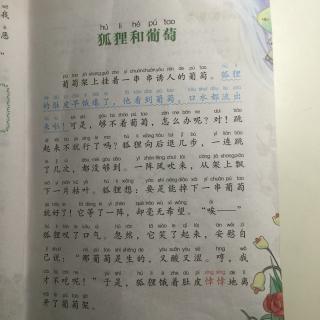 狐狸和葡萄
葡萄架上挂着一串串诱人的葡萄。狐狸
的肚皮早饿瘪了，他看到葡萄，口水都流出
来啦！可是，够不着葡萄，怎么办呢？对！跳
起来不就行了吗？狐狸向后退几步，一连跳
了几次，都没够到。一阵风吹来，从架上飘
下一片枯叶。狐狸想：要是能掉下一串葡萄
就好了！它等了一阵，却毫无希望。“唉——”
狐狸叹了口气。忽然，它笑了起来，安慰自
己说：“那葡萄是生的，又酸又涩。哼，我
才不吃呢！”于是，狐狸饿着肚皮悻悻地离
开了葡萄架。